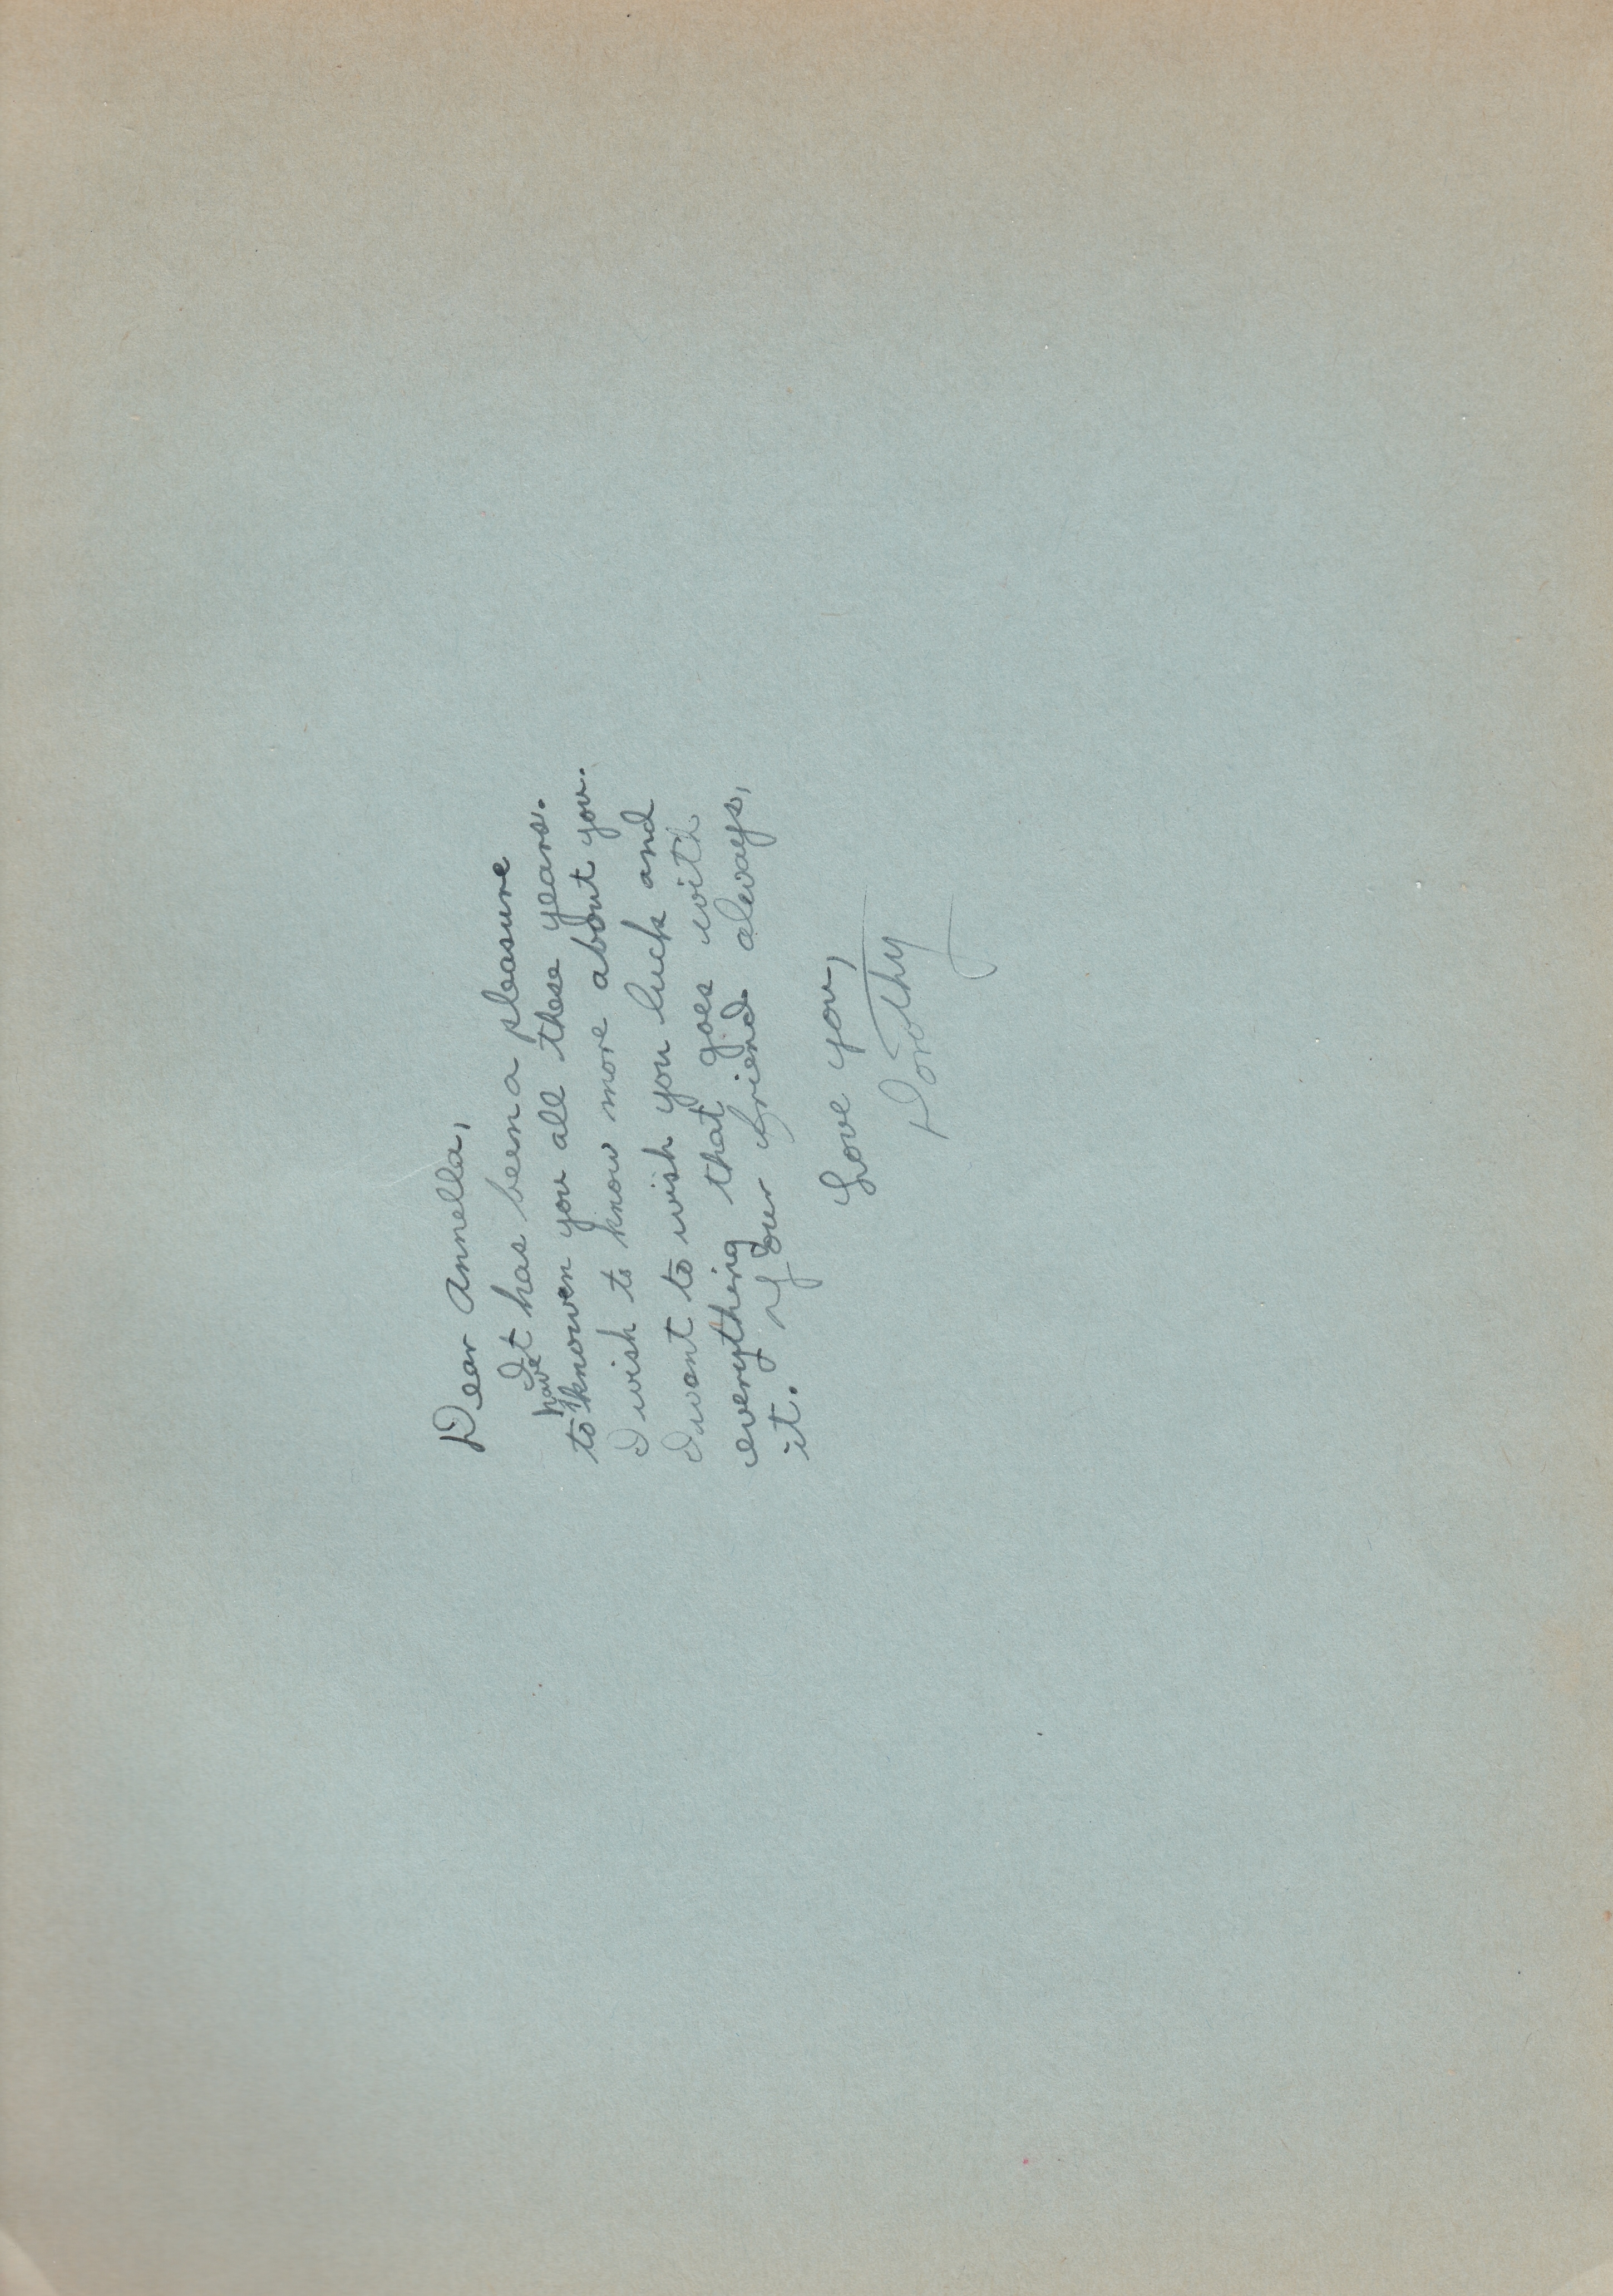 Dear Annella,
It has been a pleasure
to have knowen you all these years.
I wish to know more about you.
I want to wish you luck and
everything that goes with
it. Your friend always,
Love you,
Dorothy